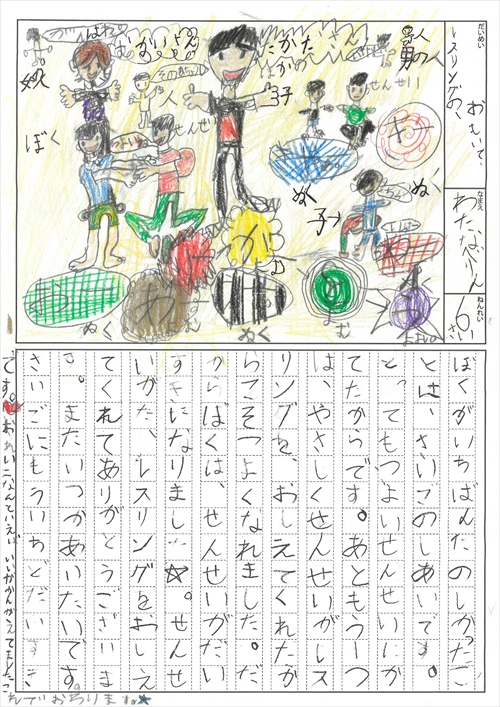 だいめい
レスリングの、
おもいで、
なまえ
わたなべりん
ねんれい
6さい
たかださん
ほかの
人
子
せんせい
ぼく
せんせい
ぬく
ぬく
子→
ぬく
ぬく
ぼくがいちばんたのしかったこ
とは、さいごのしあいです。
とってもつよいせんせいにか
てたからです。あともう一つ
は、やさしくせんせいがレス
リングを、おしえてくれたか
らこそつよくなれました。だ
からぼくは、せんせいがだい
すきになりました☆。せんせ
いがた、レスリングをおしえ
てくれてありがとうございま
す。またいつかあいたいです
さいごにもういちどだいすき
です。❤おれいになんといえばいいかかんがえてました。こ
れでおわりますね★